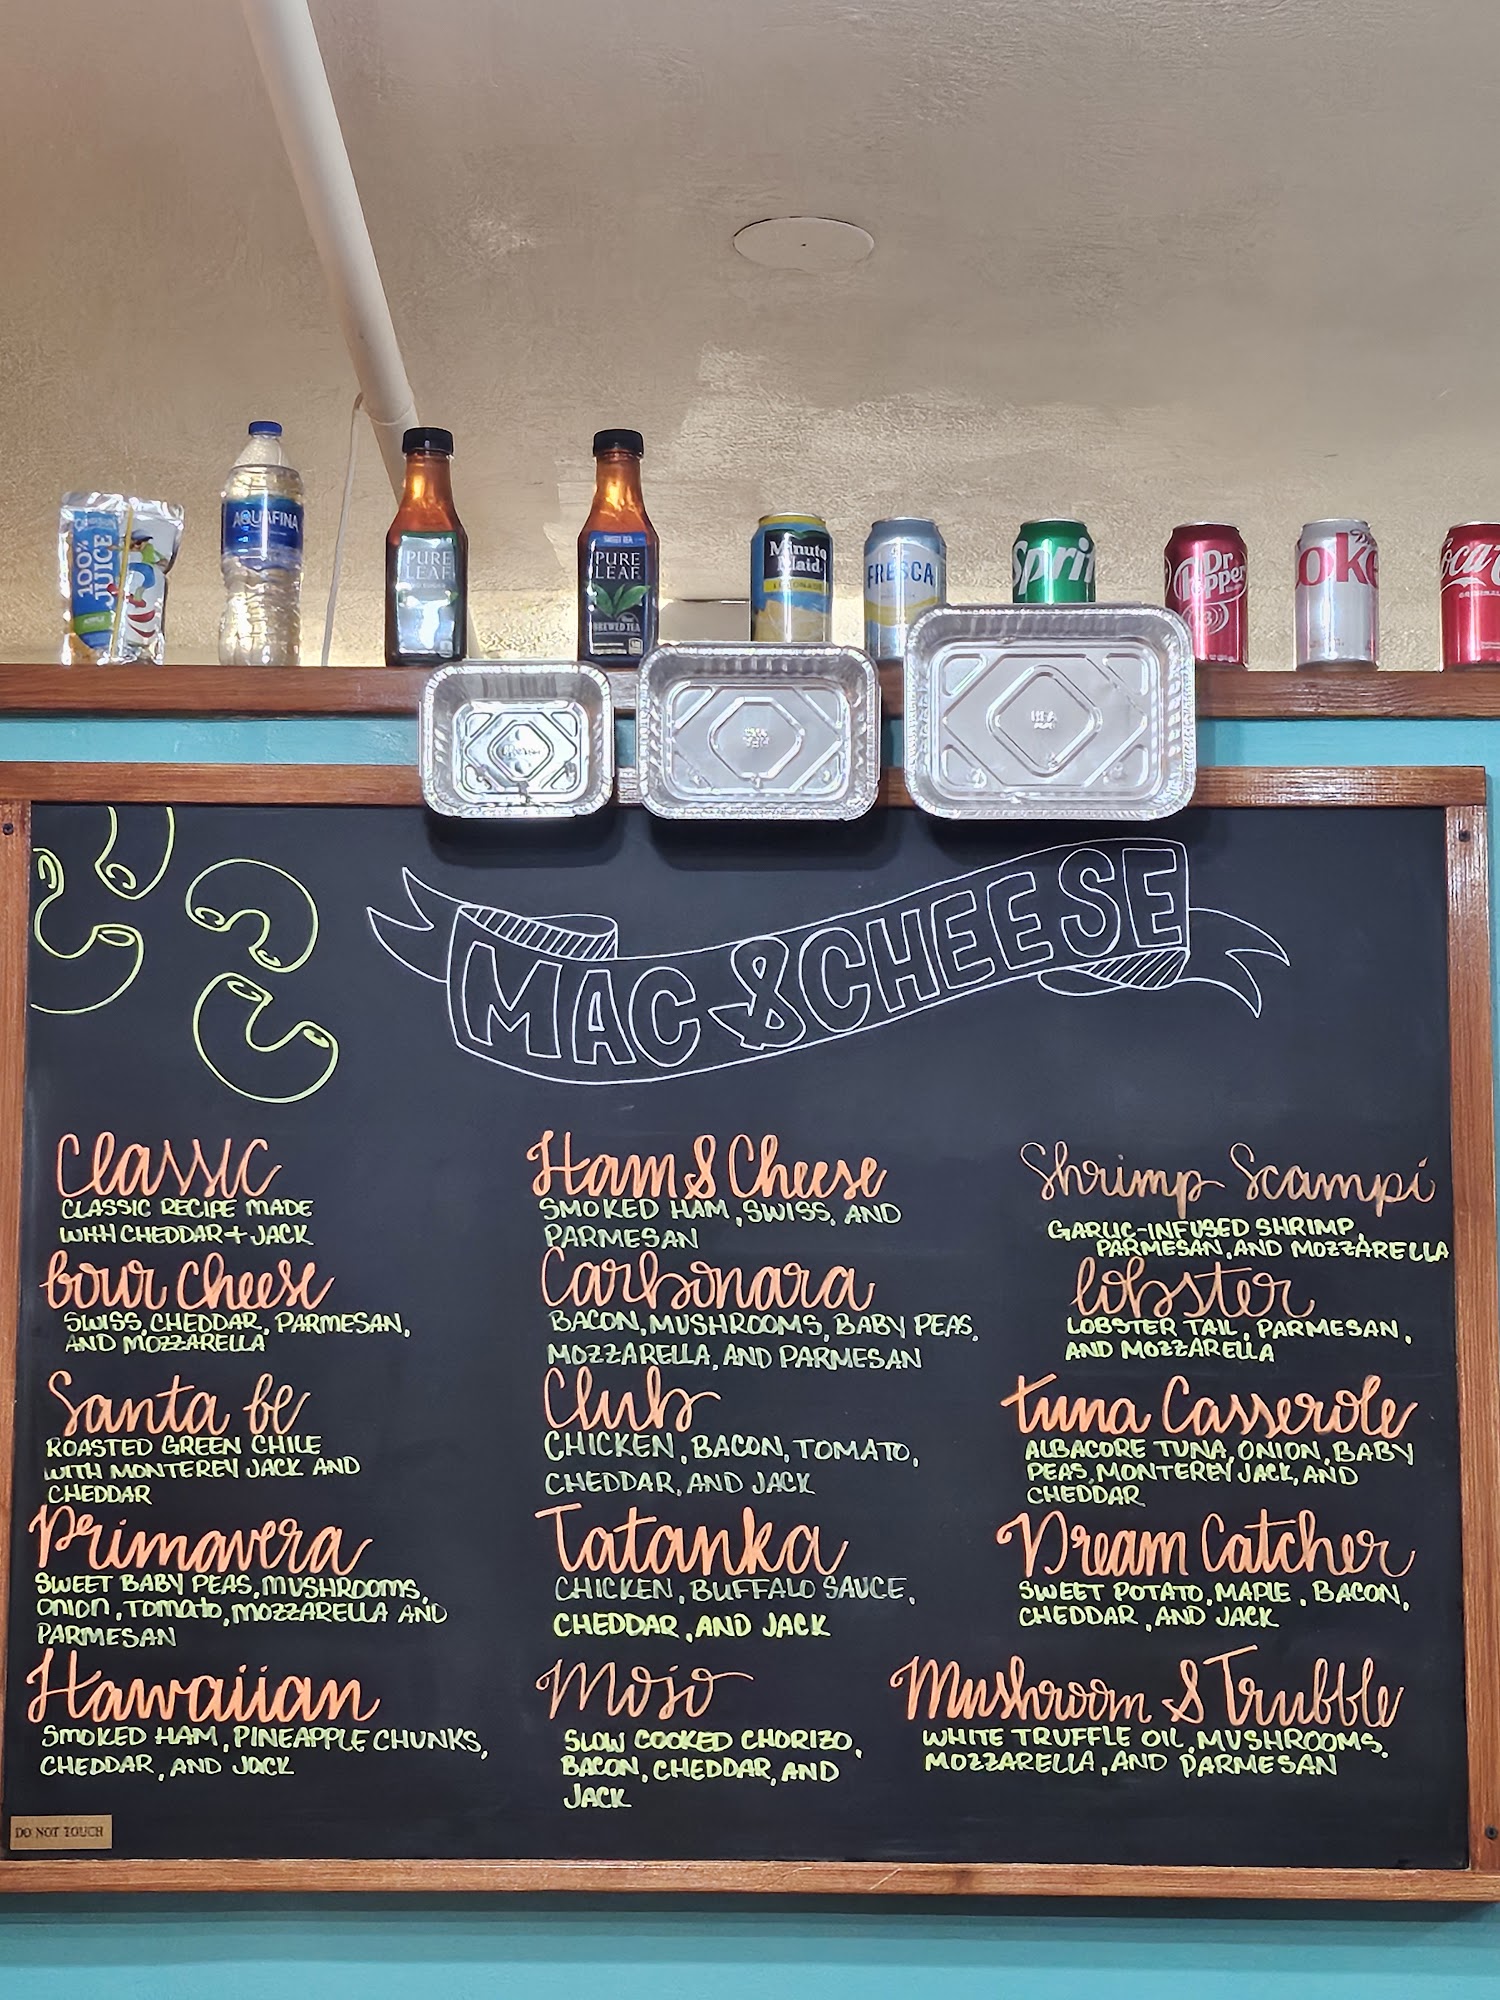 100%
JUICE
AQUAFINA
PURE
LEAF
SWEET TEA
PURE
LEAF
BREWED TEA
Minute
Maid
LEMONADE
FRESCA
Sprit
Dr
Pepper
oke
Coca-C
MAC & CHEESE
Classic
CLASSIC RECIPE MADE
WITH CHEDDAR + JACK
four cheese
SWISS, CHEDDAR, PARMESAN,
AND MOZZARELLA
Santa fe
ROASTED GREEN CHILE
WITH MONTEREY JACK AND
CHEDDAR
Primavera
SWEET BABY PEAS, MUSHROOMS,
ONION, TOMATO, MOZZARELLA AND
PARMESAN
Hawaiian
SMOKED HAM, PINEAPPLE CHUNKS,
CHEDDAR, AND JACK
Ham & Cheese
SMOKED HAM, SWISS, AND
PARMESAN
Carbonara
BACON, MUSHROOMS, BABY PEAS,
MOZZARELLA, AND PARMESAN
Club
CHICKEN, BACON, TOMATO,
CHEDDAR, AND JACK
Tatanka
CHICKEN, BUFFALO SAUCE,
CHEDDAR, AND JACK
Mojo
SLOW COOKED CHORIZO,
BACON, CHEDDAR, AND
JACK
Shrimp Scampi
GARLIC-INFUSED SHRIMP,
PARMESAN, AND MOZZARELLA
lobster
LOBSTER TAIL, PARMESAN,
AND MOZZARELLA
tuna Casserole
ALBACORE TUNA, ONION, BABY
PEAS, MONTEREY JACK, AND
CHEDDAR
Dream Catcher
SWEET POTATO, MAPLE, BACON,
CHEDDAR, AND JACK
Mushroom & Truffle
WHITE TRUFFLE OIL, MUSHROOMS,
MOZZARELLA, AND PARMESAN
DO NOT TOUCH